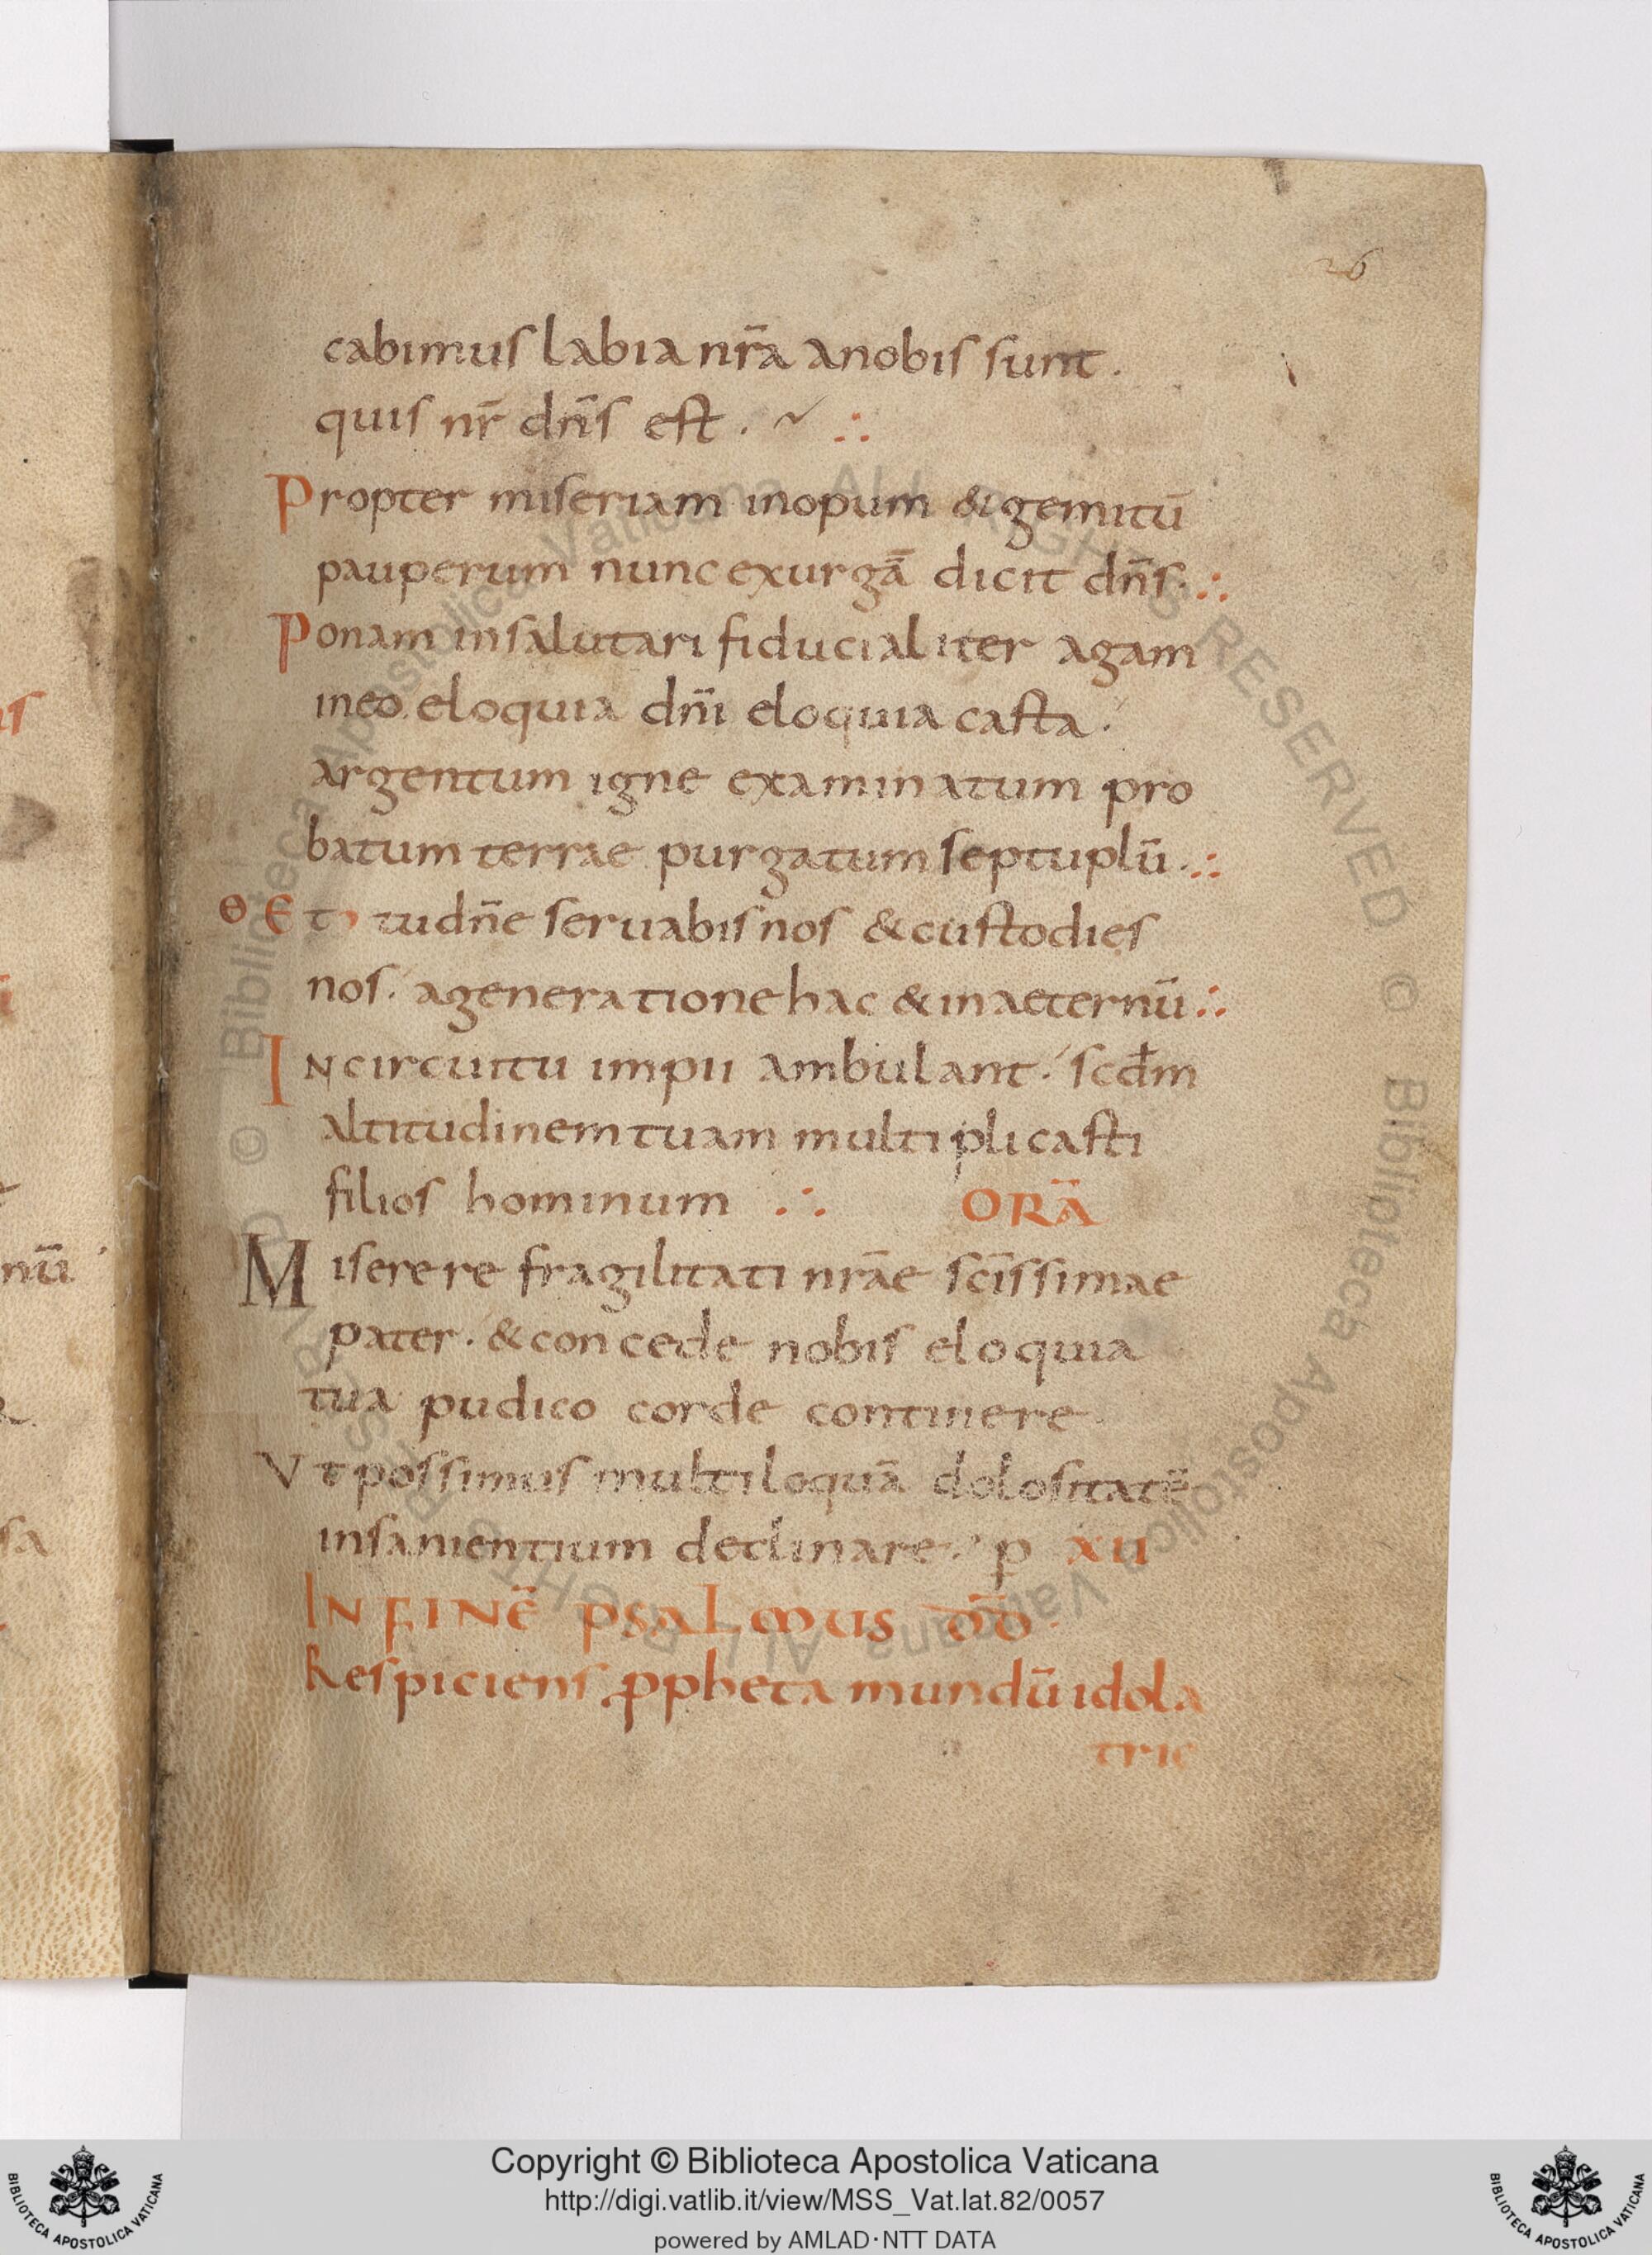 26
cabimus labia nr̄a anobis sunt.
quis nr̄ dn̄s est. ~ ∴
Propter miseriam inopum & gemitū
pauperum nunc exurgā dicit dn̄s. ∴
Ponam insalutari fiducialiter agam
ineo. eloquia dn̄i eloquia casta.
argentum igne examinatum pro
batum terrae purgatum septuplū. ∴
Θ Et tu dn̄e seruabis nos & custodies
nos. ageneratione hac & in aeternū ∴
In circuitu impii ambulant. scdm̄
altitudinem tuam multiplicasti
filios hominum ∴ ORĀ
Miserere fragilitati nrāe sc̄issimae
pater. & concede nobis eloquia
tua pudico corde continere.
Vt possimus multiloquā dolositatē
insanientium declinare. p XII
IN FINĒ PSALMUS DD̄.
Respiciens ꝓpheta mundū idola
tric
nū
sa
Copyright © Biblioteca Apostolica Vaticana
http://digi.vatlib.it/view/MSS_Vat.lat.82/0057
powered by AMLAD·NTT DATA
BIBLIOTECA APOSTOLICA VATICANA
BIBLIOTECA APOSTOLICA VATICANA
© Biblioteca Apostolica Vaticana ALL RIGHTS RESERVED © Biblioteca Apostolica Vaticana ALL RIGHTS RESERVED